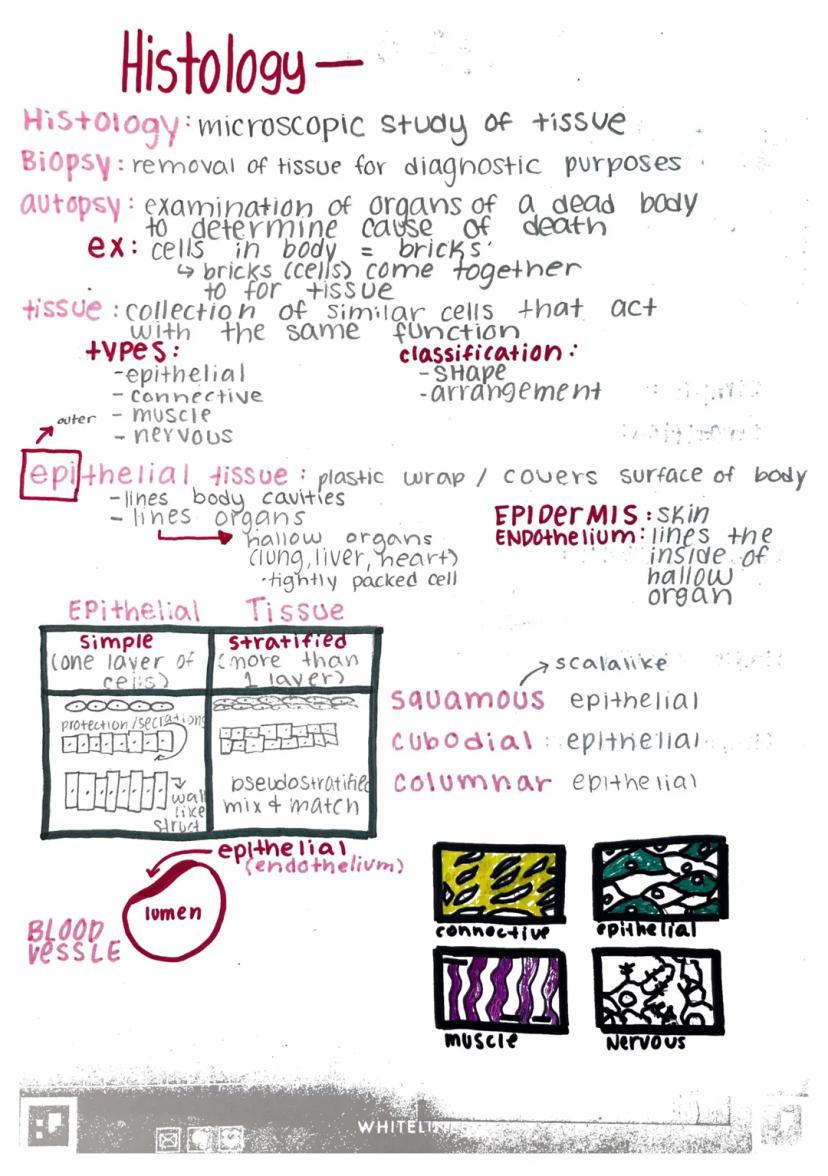 Histology—
Histology: microscopic study of tissue
Biopsy: removal of tissue for diagnostic purposes
autopsy: examination of organs of a dead body
to determine cause of death
ex: cells in body = bricks
↳ bricks (cells) come together
to for tissue
tissue: collection of similar cells that act
with the same function
types:
-epithelial
-connective
- muscle
- nervous
classification:
-shape
-arrangement
outer
epithelial tissue: plastic wrap / covers surface of body
-lines body cavities
- lines organs
hallow organs
(lung, liver, heart)
·tightly packed cell
EPIDERMIS: skin
ENDOthelium: lines the
inside of
hallow
organ
EPithelial Tissue
simple
(one layer of
cells)
stratified
(more than
1 layer)
protection/secrations
wall
like
struct
pseudostratified
mix & match
scalalike
squamous epithelial
cubodial: epithelial
columnar epithelial
epithelial
(endothelium)
lumen
BLOOD
VESSLE
connoctive
epithelial
muscle
Nervous